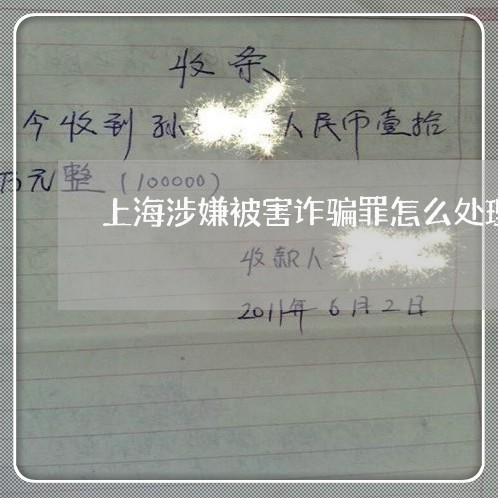 收条
今收到孙 人民币壹拾
万元整（100000）
上海涉嫌被害诈骗罪怎么处理
收款人
2011年6月2日